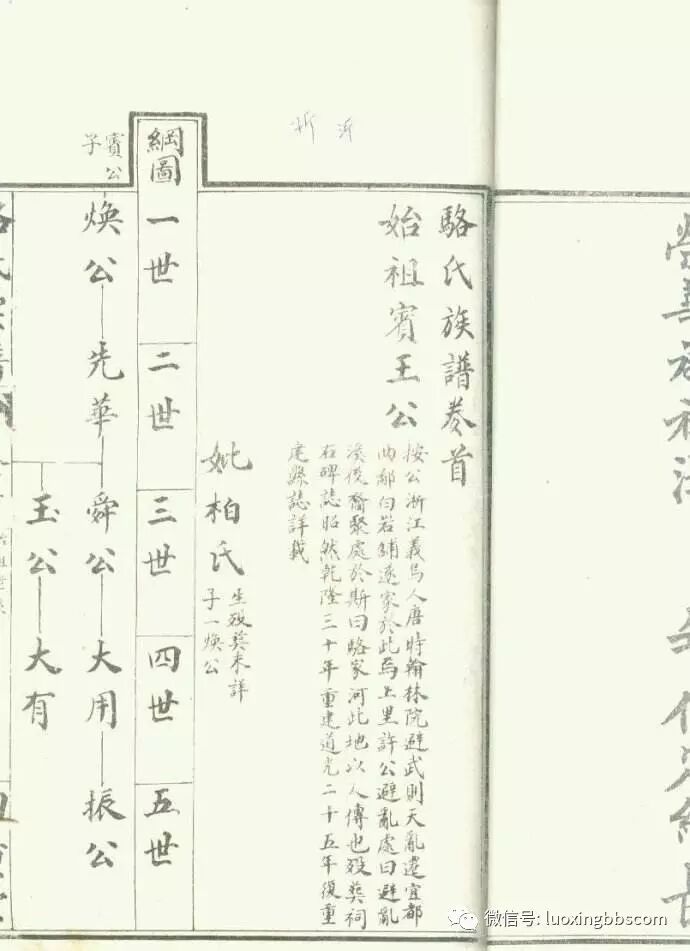 駱氏族譜卷首
始祖賓王公
按公浙江義烏人唐時翰林院避武則天亂遷宜都
内鄰白岩鋪遂家於此焉上里許公避亂處曰避亂
溪後裔聚處於斯曰駱家河此地以人傳也歿葬祠
右碑誌昭然乾隆三十年重建道光二十五年復重
建縣誌詳載
妣柏氏
生歿葬未詳
子一煥公
綱圖
一世
二世
三世
四世
五世
賓公
子
煥公
先華
舜公
大用
振公
玉公
大有
微信号: luoxingbbscom